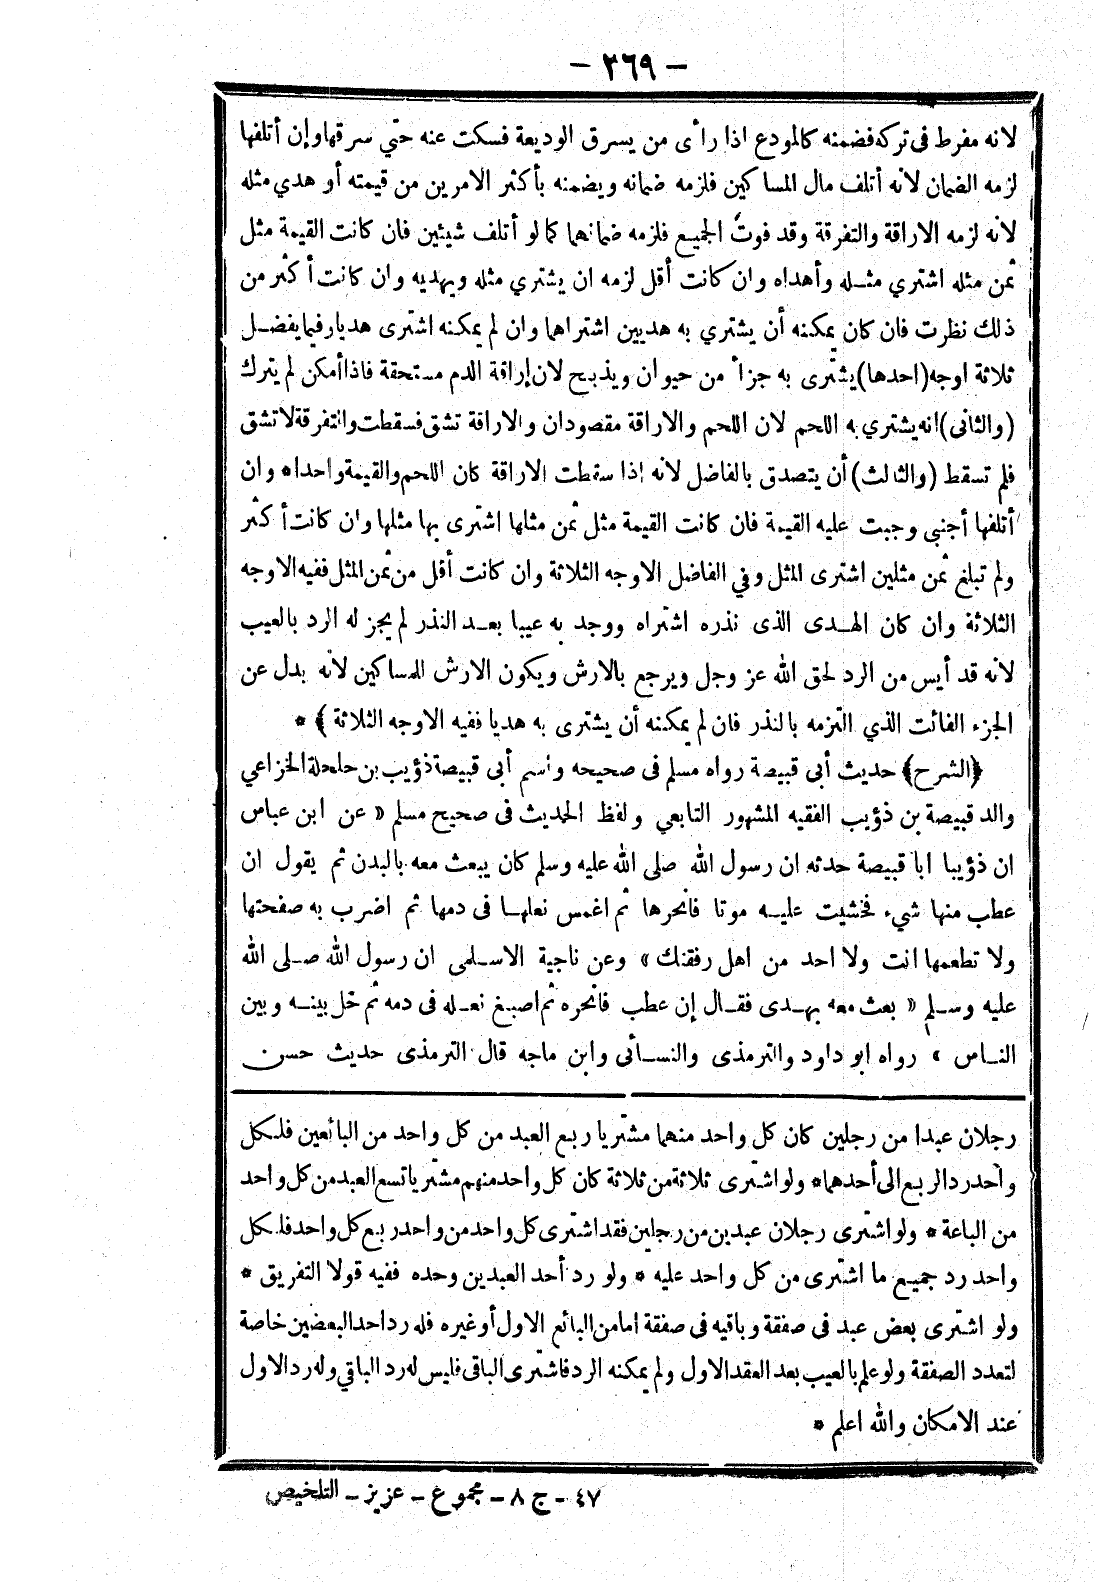 - ٣٦٩ -
لانه مفرط فى تركه فضمنه كالمودع اذا رأى من يسرق الوديعة فسكت عنه حتي سرقها وإن أتلفها
لزمه الضمان لأنه أتلف مال المساكين فلزمه ضمانه ويضمنه بأكثر الامرين من قيمته أو هدي مثله
لأنه لزمه الاراقة والتفرقة وقد فوت الجميع فلزمه ضمانهما كما لو أتلف شيئين فان كانت القيمة مثل
ثمن مثله اشتري مثله وأهداه وان كانت أقل لزمه ان يشتري مثله ويهديه وان كانت أكثر من
ذلك نظرت فان كان يمكنه أن يشتري به هديين اشتراهما وان لم يمكنه اشترى هديا وفيما يفضل
ثلاثة اوجه (احدها) يشترى به جزأ من حيوان ويذبح لان إراقة الدم مستحقة فاذا أمكن لم يترك
(والثانى) انه يشتري به اللحم لان اللحم والاراقة مقصودان والاراقة تشق فسقطت والتفرقة لا تشق
فلم تسقط (والثالث) أن يتصدق بالفاضل لأنه إذا سقطت الاراقة كان اللحم والقيمة واحدا * وان
أتلفها أجنبي وجبت عليه القيمة فان كانت القيمة مثل ثمن مثلها اشترى بها مثلها وان كانت أكثر
ولم تبلغ ثمن مثلين اشترى المثل وفي الفاضل الاوجه الثلاثة وان كانت أقل من ثمن المثل ففيه الاوجه
الثلاثة وان كان الهدى الذى نذره اشتراه ووجد به عيبا بعد النذر لم يجز له الرد بالعيب
لانه قد أيس من الرد لحق الله عز وجل ويرجع بالارش ويكون الارش للمساكين لأنه بدل عن
الجزء الفائت الذي التزمه بالنذر فان لم يمكنه أن يشترى به هديا ففيه الاوجه الثلاثة ﴾ *
﴿الشرح﴾ حديث أبي قبيصة رواه مسلم فى صحيحه واسم أبى قبيصة ذؤيب بن حلحلة الخزاعي
والد قبيصة بن ذؤيب الفقيه المشهور التابعي ولفظ الحديث فى صحيح مسلم « عن ابن عباس
ان ذؤيبا ابا قبيصة حدثه ان رسول الله صلى الله عليه وسلم كان يبعث معه بالبدن ثم يقول ان
عطب منها شيء فخشيت عليه موتا فانحرها ثم اغمس نعلها فى دمها ثم اضرب به صفحتها
ولا تطعمها انت ولا احد من اهل رفقتك » وعن ناجية الاسلمى ان رسول الله صلى الله
عليه وسلم « بعث معه بهدى فقال إن عطب فانحره ثم اصبغ نعله فى دمه ثم خل بينه وبين
الناس » رواه ابو داود والترمذى والنسائى وابن ماجه قال الترمذى حديث حسن
رجلان عبدا من رجلين كان كل واحد منهما مشتريا ربع العبد من كل واحد من البائعين فلكل
واحد رد الربع الى أحدهما * ولو اشترى ثلاثة من ثلاثة كان كل واحد منهم مشتريا تسع العبد من كل واحد
من الباعة * ولو اشترى رجلان عبدين من رجلين فقد اشترى كل واحد من واحد ربع كل واحد فلكل
واحد رد جميع ما اشترى من كل واحد عليه * ولو رد أحد العبدين وحده ففيه قولا التفريق *
ولو اشترى بعض عبد فى صفقة وباقيه فى صفقة اما من البائع الاول أو غيره فله رد احد البعضين خاصة
لتعدد الصفقة ولو علم بالعيب بعد العقد الاول ولم يمكنه الرد فاشترى الباقى فليس له رد الباقي وله رد الاول
عند الامكان والله اعلم *
٤٧ - ج ٨ - مجموع - عزيز - التلخيص